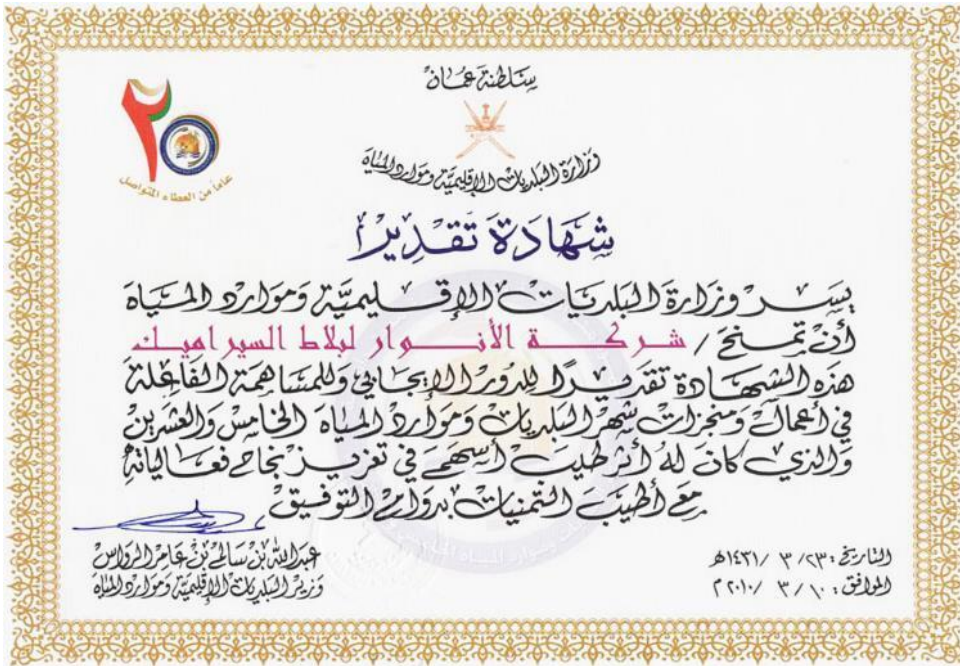 سلطنة عمان
٢٥
عاماً من العطاء المتواصل
وزارة البلديات الإقليمية وموارد المياه
شهادة تقدير
يسر وزارة البلديات الإقليمية وموارد المياه
أن تمنح / شركة الأنوار لبلاط السيراميك
هذه الشهادة تقديراً للدور الإيجابي وللمساهمة الفاعلة
في أعمال ومنجزات شهر البلديات وموارد المياه الخامس والعشرين
والذي كان له أثر طيب أسهم في تعزيز نجاح فعالياته
مع أطيب التمنيات بدوام التوفيق
عبدالله بن سالم بن عامر الرواس
وزير البلديات الإقليمية وموارد المياه
التاريخ : ٢٣ / ٣ / ١٤٣١هـ
الموافق : ١٠ / ٣ / ٢٠١٠م